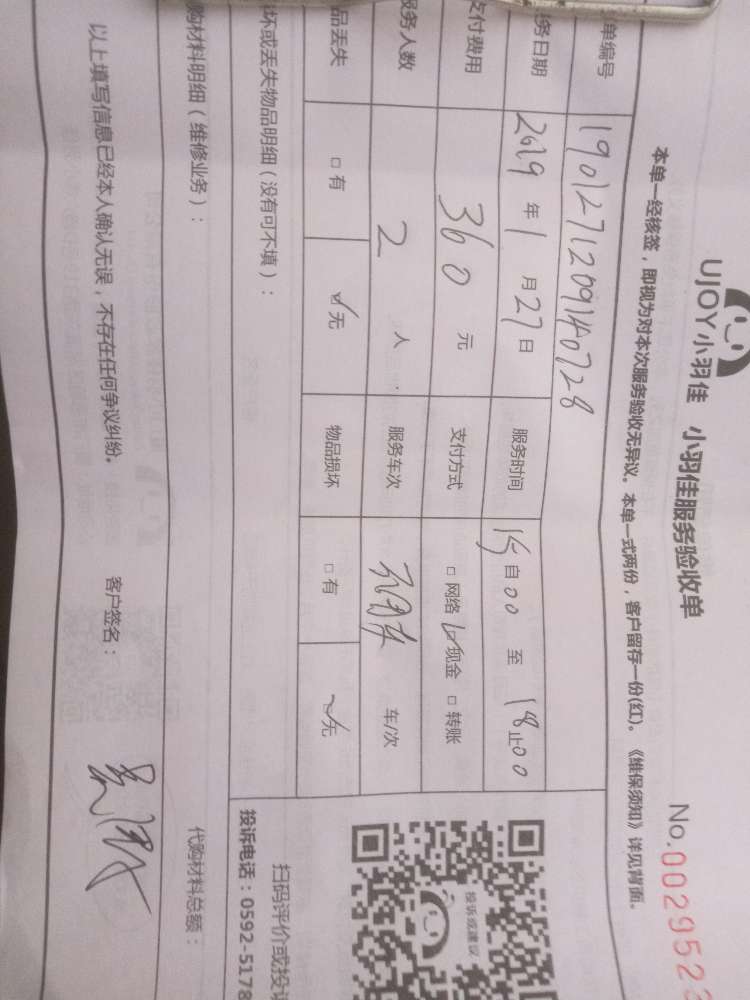 UJOY小羽佳 小羽佳服务验收单
No.0029523
本单一经核签，即视为对本次服务验收无异议。本单一式两份，客户留存一份(红)。《维保须知》详见背面。
单编号 1901271209140728
务日期 2019年1月27日 服务时间 15自00至18止00
支付费用 360元 支付方式 □网络 ☑现金 □转账
服务人数 2人 服务车次 车/次
品丢失 □有 ☑无 物品损坏 □有 ☑无
坏或丢失物品明细（没有可不填）：
投诉或建议
扫码评价或投诉
投诉电话：0592-5178
购材料明细（维修业务）：
代购材料总额：
以上填写信息已经本人确认无误，不存在任何争议纠纷。
客户签名：